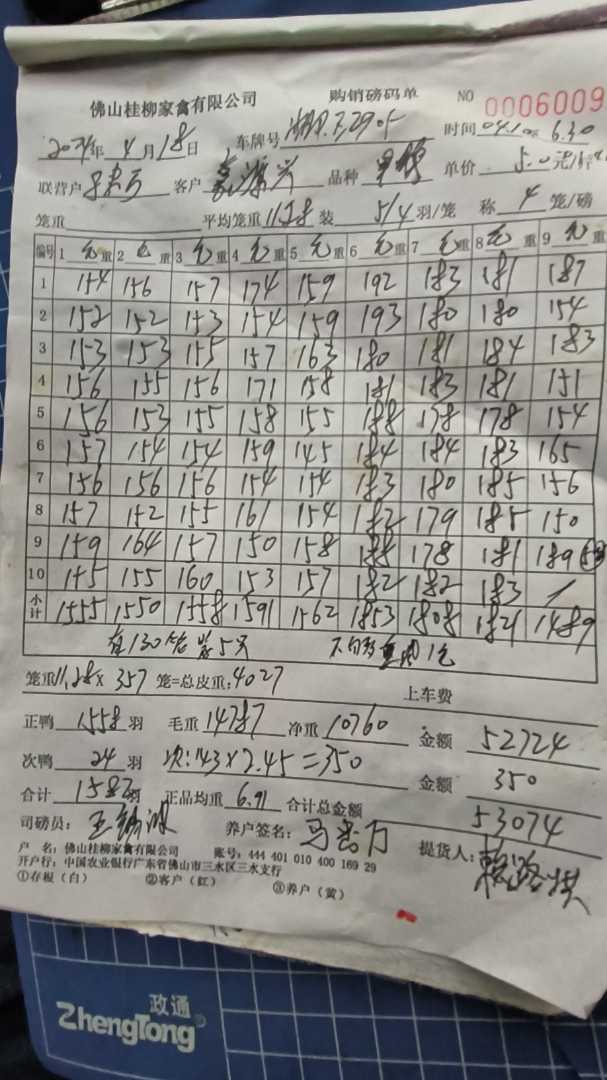 佛山桂柳家禽有限公司 购销磅码单 NO 0006009
2024年 4月18日 车牌号 时间 6.30
联营户 客户 品种 单价 5.0元/
笼重 平均笼重 11.28 装 5/4 羽/笼 称 4 笼/磅
编号 1 毛重 2 毛重 3 毛重 4 毛重 5 毛重 6 毛重 7 毛重 8 毛重 9 毛重
1 154 156 157 174 159 192 183 181 187
2 152 152 153 154 159 193 180 180 154
3 153 153 155 157 163 180 181 184 183
4 156 155 156 171 158 181 183 181 151
5 156 153 155 158 155 188 178 178 154
6 157 154 154 159 145 184 184 183 165
7 156 156 156 154 154 183 180 185 156
8 157 152 155 161 154 182 179 185 150
9 159 164 157 150 158 188 178 181 189
10 155 160 153 157 182 182 183 /
小计 1555 1550 1558 1591 1562 1853 1808 1821 1489
有130笼装5只
笼重 11.28 x 357 笼=总皮重: 4027 上车费
正鸭 1558 羽 毛重 14787 净重 10760 金额 52724
次鸭 24 羽 次: 143 x 2.45 = 350 金额 350
合计 1582 羽 正品均重 6.91 合计总金额 53074
司磅员: 养户签名: 提货人:
户 名: 佛山桂柳家禽有限公司 账号: 444 401 010 400 169 29
开户行: 中国农业银行广东省佛山市三水区三水支行
①存根(白) ②客户(红) ③养户(黄)
政通
ZhengTong